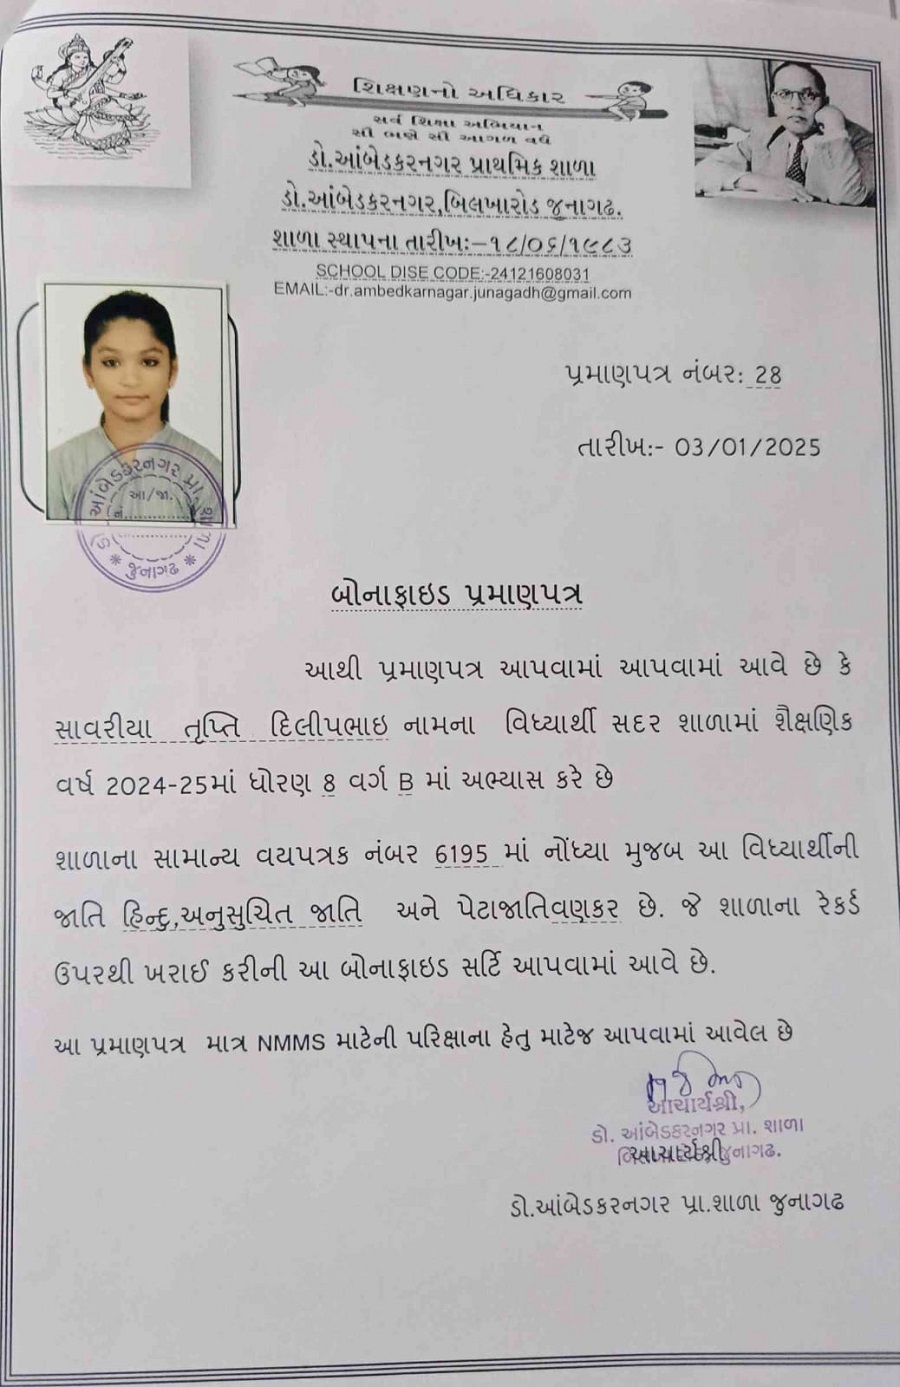 શિક્ષણનો અધિકાર
સર્વ શિક્ષા અભિયાન
સૌ ભણે સૌ આગળ વધે
ડો.આંબેડકરનગર પ્રાથમિક શાળા
ડો.આંબેડકરનગર,બિલખારોડ જૂનાગઢ.
શાળા સ્થાપના તારીખઃ-૧૮/૦૬/૧૯૮૩
SCHOOL DISE CODE:-24121608031
EMAIL:-dr.ambedkarnagar.junagadh@gmail.com
પ્રમાણપત્ર નંબર: 28
તારીખ:- 03/01/2025
આંબેડકરનગર પ્રા. શાળા
આ/જા.
નં.
* જુનાગઢ *
બોનાફાઇડ પ્રમાણપત્ર
આથી પ્રમાણપત્ર આપવામાં આપવામાં આવે છે કે
સાવરીયા તૃપ્તિ દિલીપભાઇ નામના વિધ્યાર્થી સદર શાળામાં શૈક્ષણિક
વર્ષ 2024-25માં ધોરણ 8 વર્ગ B માં અભ્યાસ કરે છે
શાળાના સામાન્ય વયપત્રક નંબર 6195 માં નોંધ્યા મુજબ આ વિધ્યાર્થીની
જાતિ હિન્દુ,અનુસુચિત જાતિ અને પેટાજાતિવણકર છે. જે શાળાના રેકર્ડ
ઉપરથી ખરાઈ કરીની આ બોનાફાઇડ સર્ટિ આપવામાં આવે છે.
આ પ્રમાણપત્ર માત્ર NMMS માટેની પરિક્ષાના હેતુ માટેજ આપવામાં આવેલ છે
આચાર્યશ્રી,
ડો. આંબેડકરનગર પ્રા. શાળા
જુનાગઢ.
આચાર્યશ્રી
ડો.આંબેડકરનગર પ્રા.શાળા જુનાગઢ